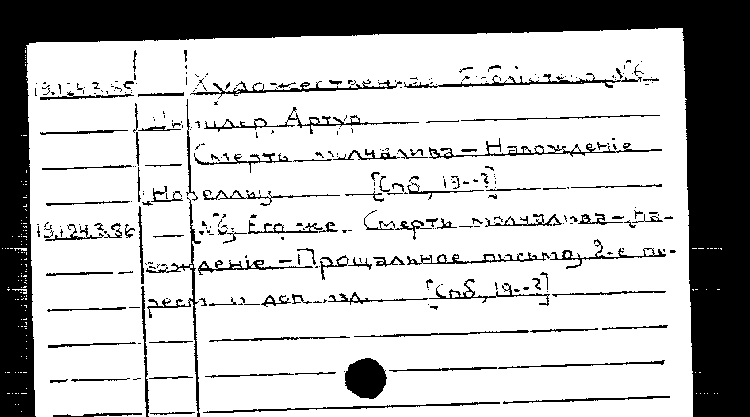 19.124.3.85 Художественная библіотека, №6
Шницлер, Артур.
Смерть молчалива – Навожденіе
[Новеллы. [Спб, 19--?]
19.124.3.86 [№6] Его же. Смерть молчалива – На-
вожденіе – Прощальное письмо, 2-е пе-
ресм. и доп. изд. [Спб, 19--?].